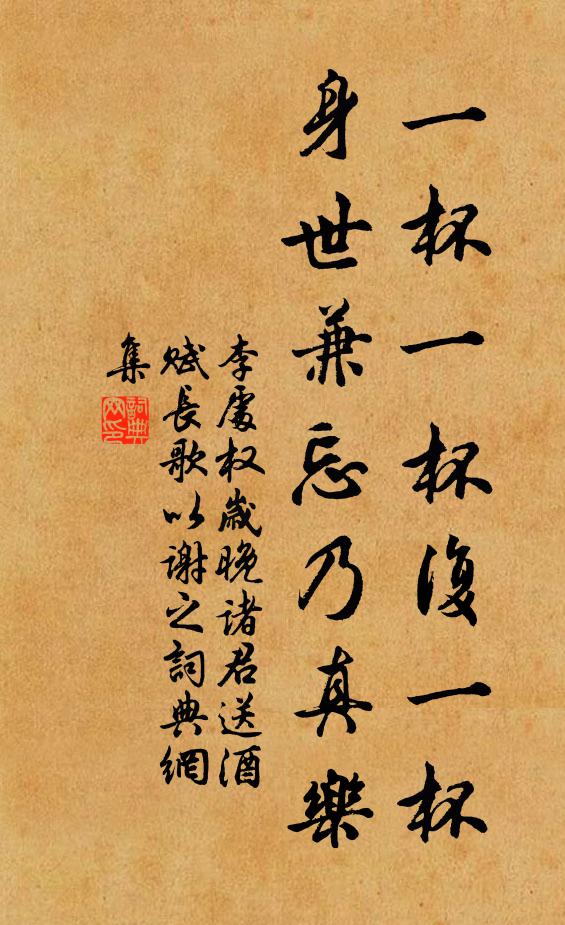 一杯一杯復一杯
身世兼忘乃真樂
李處权歲晚诸君送酒
赋長歌以謝之詞典網
集
詞典
网印